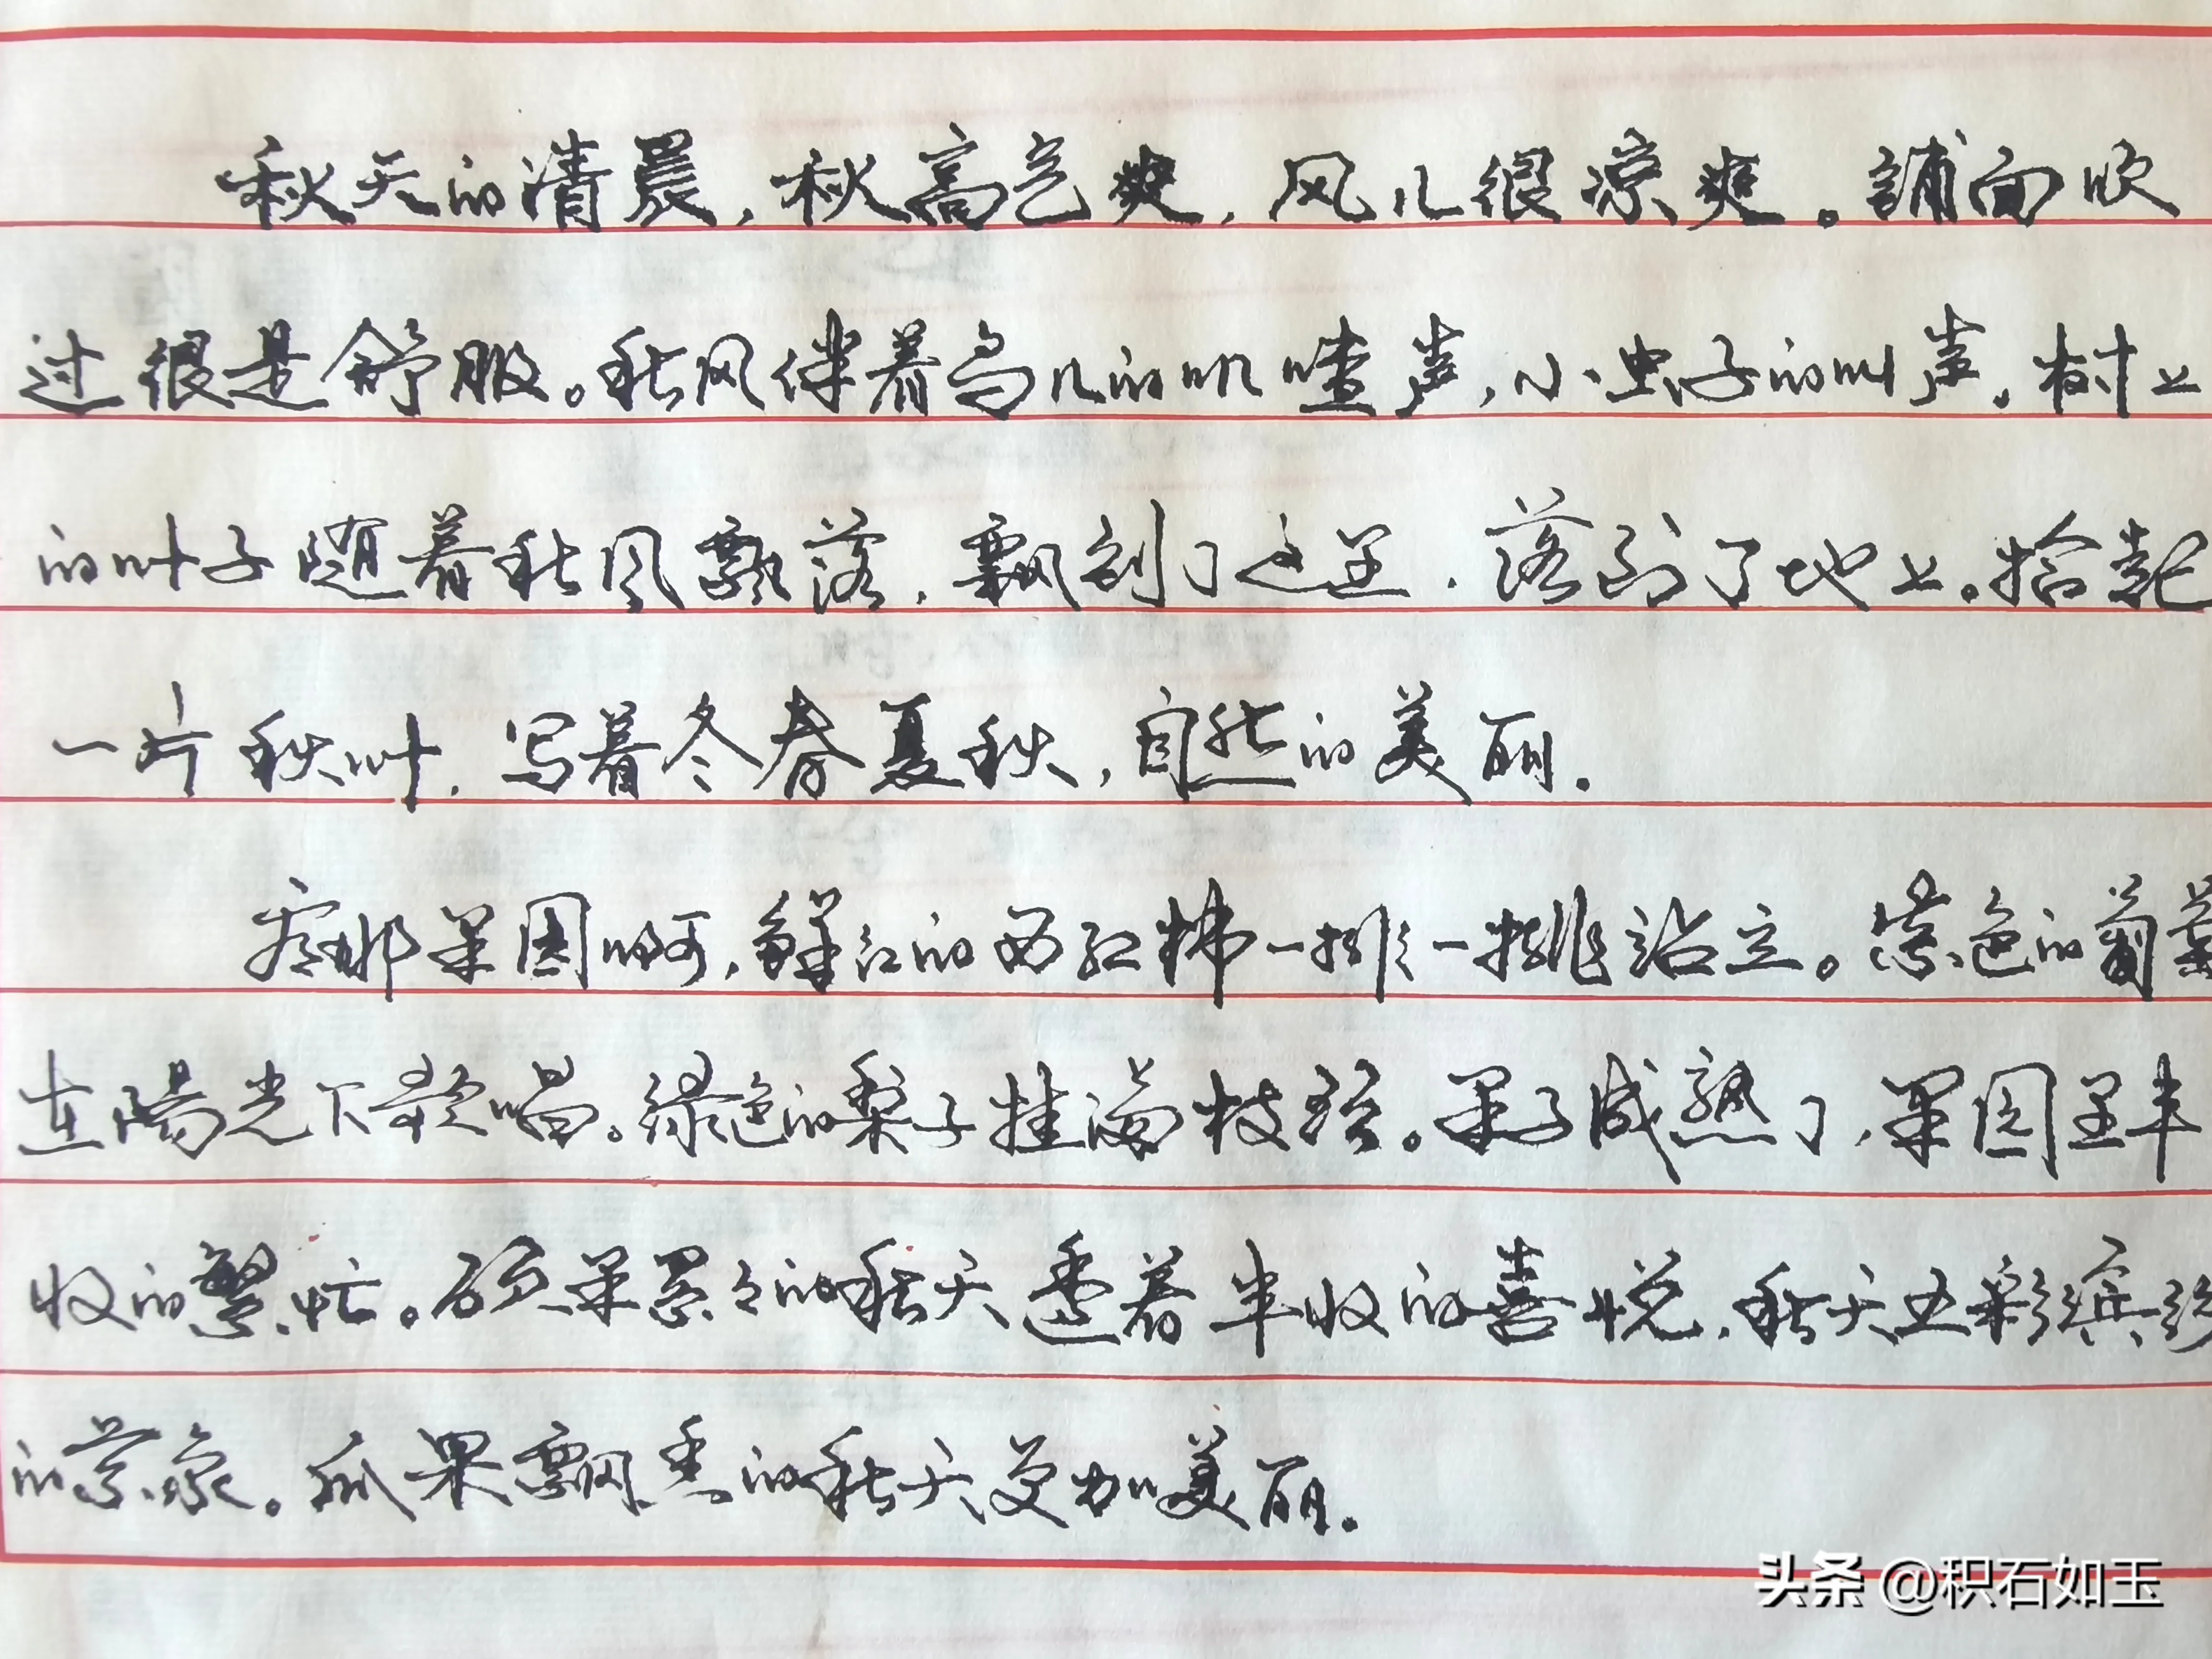 秋天的清晨,秋高气爽,风儿很凉爽。铺面吹
过很是舒服。秋风伴着鸟儿的叽喳声,小虫子的叫声,树上
的叶子随着秋风飘落,飘到了这里,落到了地上。拾起
一片秋叶,写着冬春夏秋,自然的美丽。
看那果园啊,鲜红的西红柿一排一排站立。紫色的葡萄
在陽光下歌唱。绿色的梨子挂满枝弦。果子成熟了,果园里丰
收的繁忙。硕果累々的秋天透着丰收的喜悦,秋天五彩缤纷
的景象。瓜果飘香的秋天更加美丽。
头条 @积石如玉